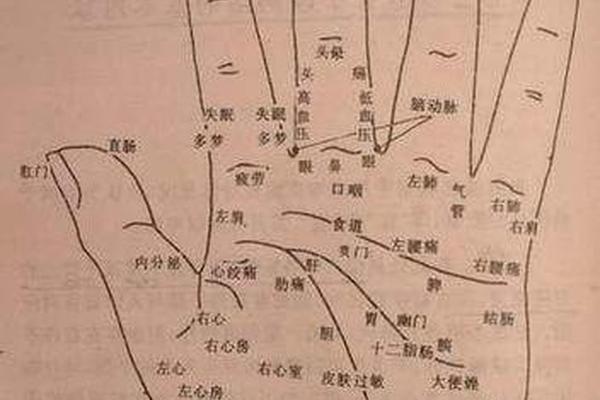 头晕
头
痛
高血压
低血压
脑动脉
失眠
多梦
失眠
多梦
眼
鼻
眼
口咽
疲劳
左肺
气管
右肺
右肩
直肠
肛门
左肩
食道
贲门
左腰痛
右腰痛
内分泌
心绞痛
肝
肋痛
脾
结肠
右心
胃
幽门
胆
右心房
十二指肠
胰
左心
右心室
皮肤过敏
大便燥
左心房